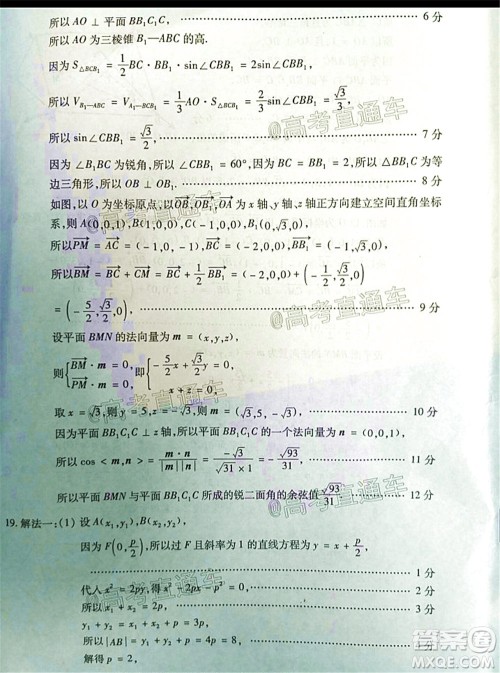 所以 AO ⊥ 平面 BB₁C₁C, 6 分
所以 AO 为三棱锥 B₁—ABC 的高.
因为 S△BCB₁ = 1/2 BC · BB₁ · sin∠CBB₁ = 2sin∠CBB₁,
所以 V_{B₁—ABC} = V_{A—BCB₁} = 1/3 AO · S△BCB₁ = 2/3 sin∠CBB₁ = √3/3,
所以 sin∠CBB₁ = √3/2, 7 分
因为 ∠B₁BC 为锐角, 所以 ∠CBB₁ = 60°, 因为 BC = BB₁, 所以 △BCB₁ 为等
边三角形, 所以 OB ⊥ OB₁. 8 分
如图, 以 O 为坐标原点, 以 OB, OB₁, OA 为 x 轴, y 轴, z 轴正方向建立空间直角坐标
系, 则 A(0,0,1), C(-1,0,0), B(1,0,0), B₁(0,√3,0),
所以 PM = AC = (-1,0,-1), BC = (-2,0,0),
所以 BM = BC + CM = BC + 1/2 BB₁ = (-2,0,0) + (-1/2, √3/2, 0)
= (-5/2, √3/2, 0), 9 分
设平面 BMN 的法向量为 m = (x,y,z),
则 { BM · m = 0, PM · m = 0, 即 { -5/2 x + √3/2 y = 0, x + z = 0,
取 x = √3, 则 y = 5, z = -√3, 则 m = (√3,5,-√3), 10 分
因为平面 BB₁C₁C ⊥ z 轴, 所以平面 BB₁C₁C 的一个法向量为 n = (0,0,1),
所以 cos<m,n> = m·n/|m||n| = -√3/(√31 × 1) = -√93/31, 11 分
所以平面 BMN 与平面 BB₁C₁C 所成的锐二面角的余弦值 √93/31. 12 分
19. 解法一: (1) 设 A(x₁,y₁), B(x₂,y₂),
因为 F(0, p/2), 所以过 F 且斜率为 1 的直线方程为 y = x + p/2, 1 分
代入 x² = 2py, 得 x² - 2px - p² = 0, 2 分
所以 x₁ + x₂ = 2p, 3 分
y₁ + y₂ = x₁ + x₂ + p = 3p,
所以 |AB| = y₁ + y₂ + p = 4p = 8,
解得 p = 2,
@高考直通车
@高考直通车
@高考直通车
@高考直通车
答案圈
MXQE.COM